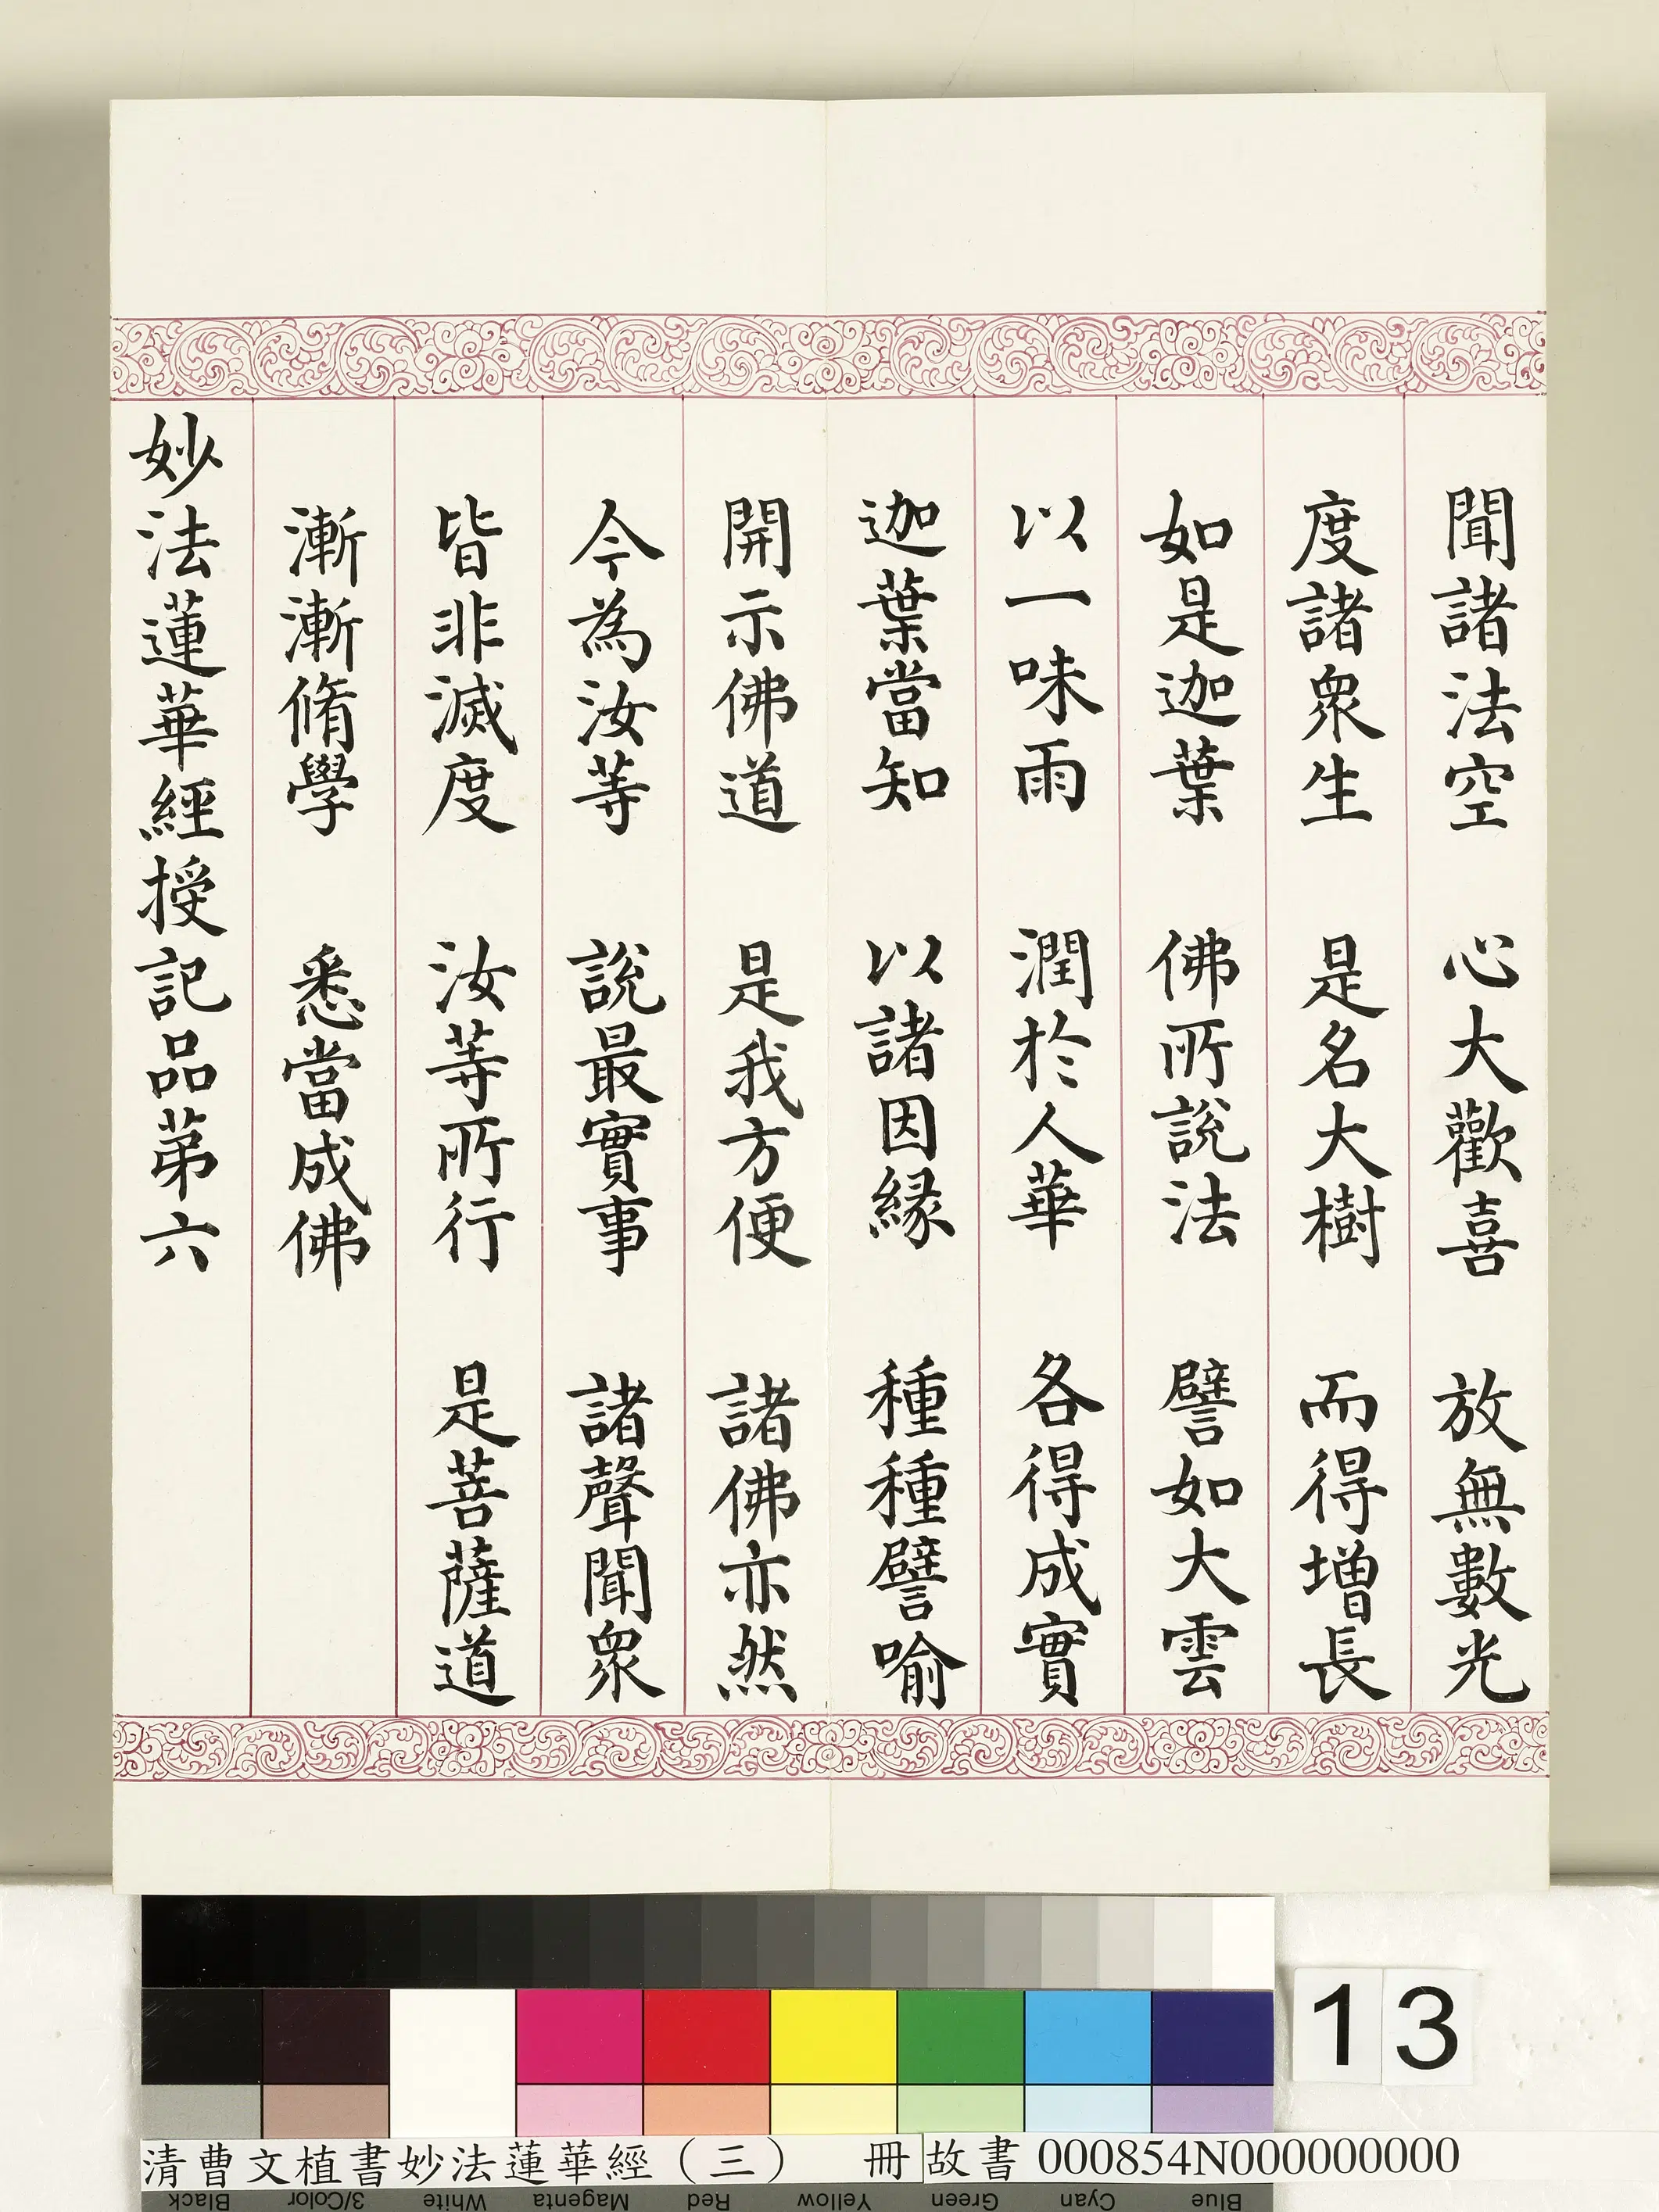 聞諸法空 心大歡喜 放無數光
度諸衆生 是名大樹 而得增長
如是迦葉 佛所說法 譬如大雲
以一味雨 潤於人華 各得成實
迦葉當知 以諸因緣 種種譬喻
開示佛道 是我方便 諸佛亦然
今為汝等 說最實事 諸聲聞衆
皆非滅度 汝等所行 是菩薩道
漸漸脩學 悉當成佛
妙法蓮華經授記品第六
13
清曹文植書妙法蓮華經(三) 冊 故書 000854N000000000
Black 3/Color White Magenta Red Yellow Green Cyan Blue